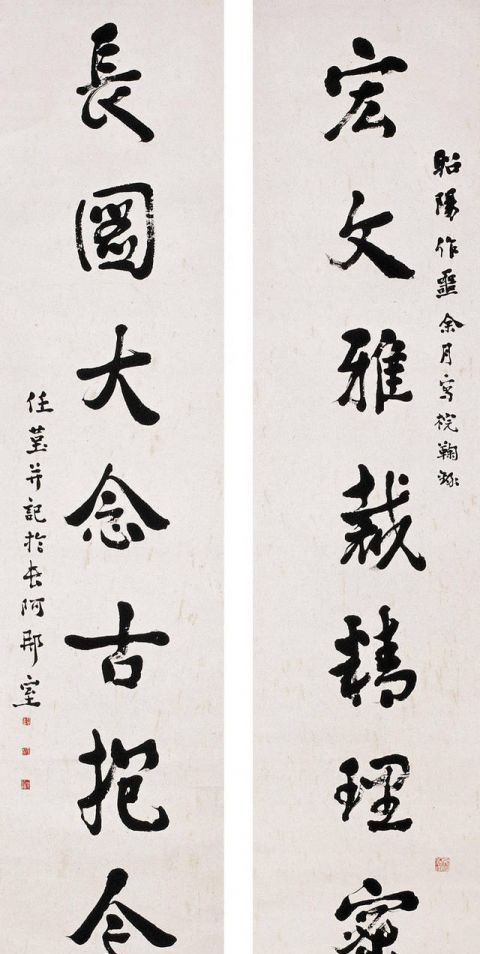 昭陽作噩余月寫梡鞠錄
宏文雅裁精理密
長圖大念古抱今
任堇并記於長阿那室